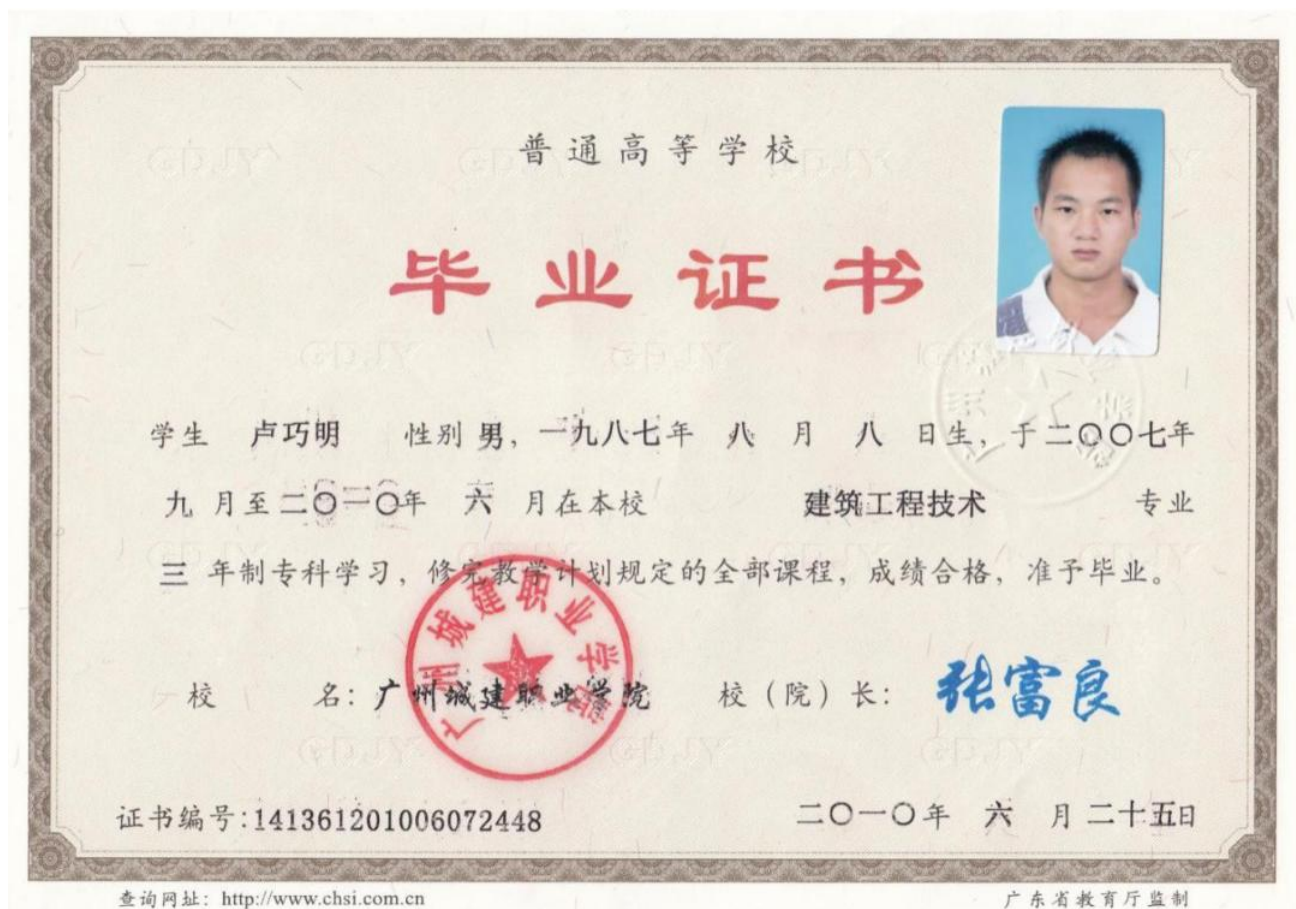 普通高等学校
毕业证书
学生 卢巧明 性别 男，一九八七年 八 月 八 日生，于二〇〇七年
九 月至二〇一〇年 六 月在本校 建筑工程技术 专业
三 年制专科学习，修完教学计划规定的全部课程，成绩合格，准予毕业。
广州城建职业学院
校 名：广州城建职业学院 校（院）长：张富良
证书编号:141361201006072448 二〇一〇年 六 月 二十五日
查询网址：http://www.chsi.com.cn 广东省教育厅监制